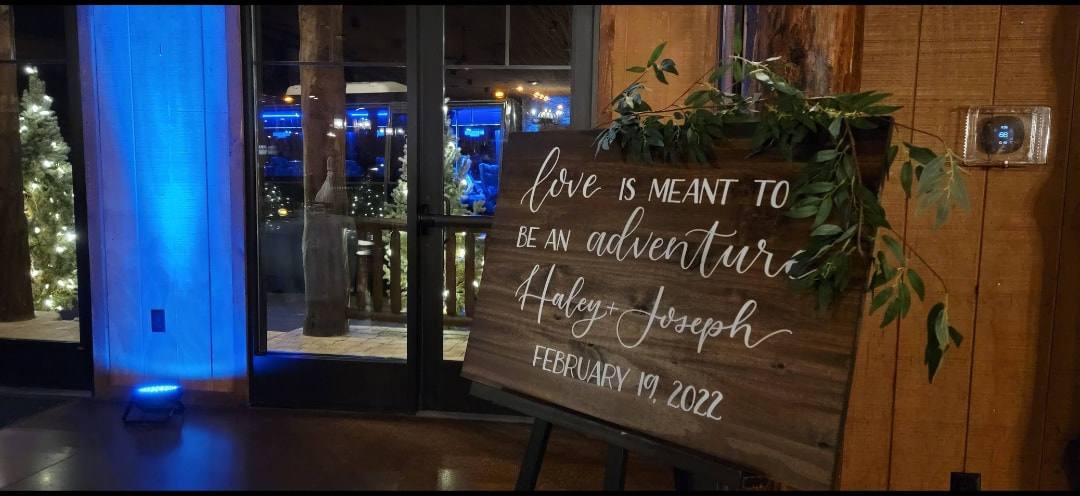 love IS MEANT TO
BE AN adventure
Haley + Joseph
FEBRUARY 19, 2022